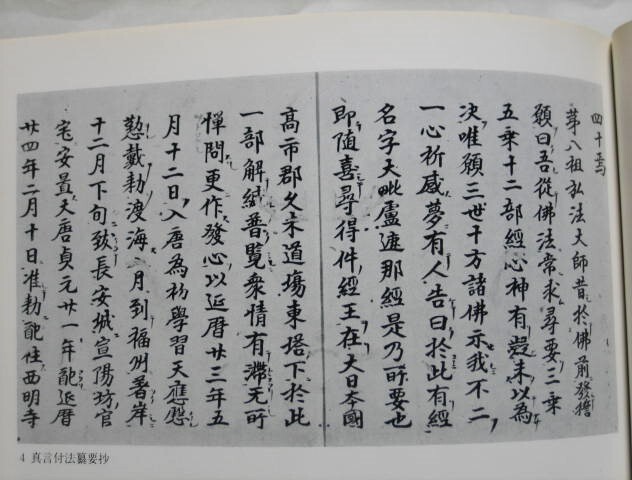 四十五
第八祖弘法大師昔於佛前發誓
願曰吾從佛法常求尋要三乗
五乗十二部經心神有疑未以為
决唯願三世十方諸佛示我不二
一心祈感夢有人告曰於此有經
名字大毗盧遮那經是乃所要也
即随喜尋得件經王在大日本國
髙市郡久米道塲東塔下於此
一部解緘普覧衆情有滞无所
憚問更作發心以延暦廿三年五
月十二日入唐為初學習天應慇
懃載勅渡海八月到福州著岸
十二月下旬致長安城宣陽坊官
宅安置大唐貞元廿一年配延暦
廿四年二月十日准勅配住西明寺
4 真言付法纂要抄